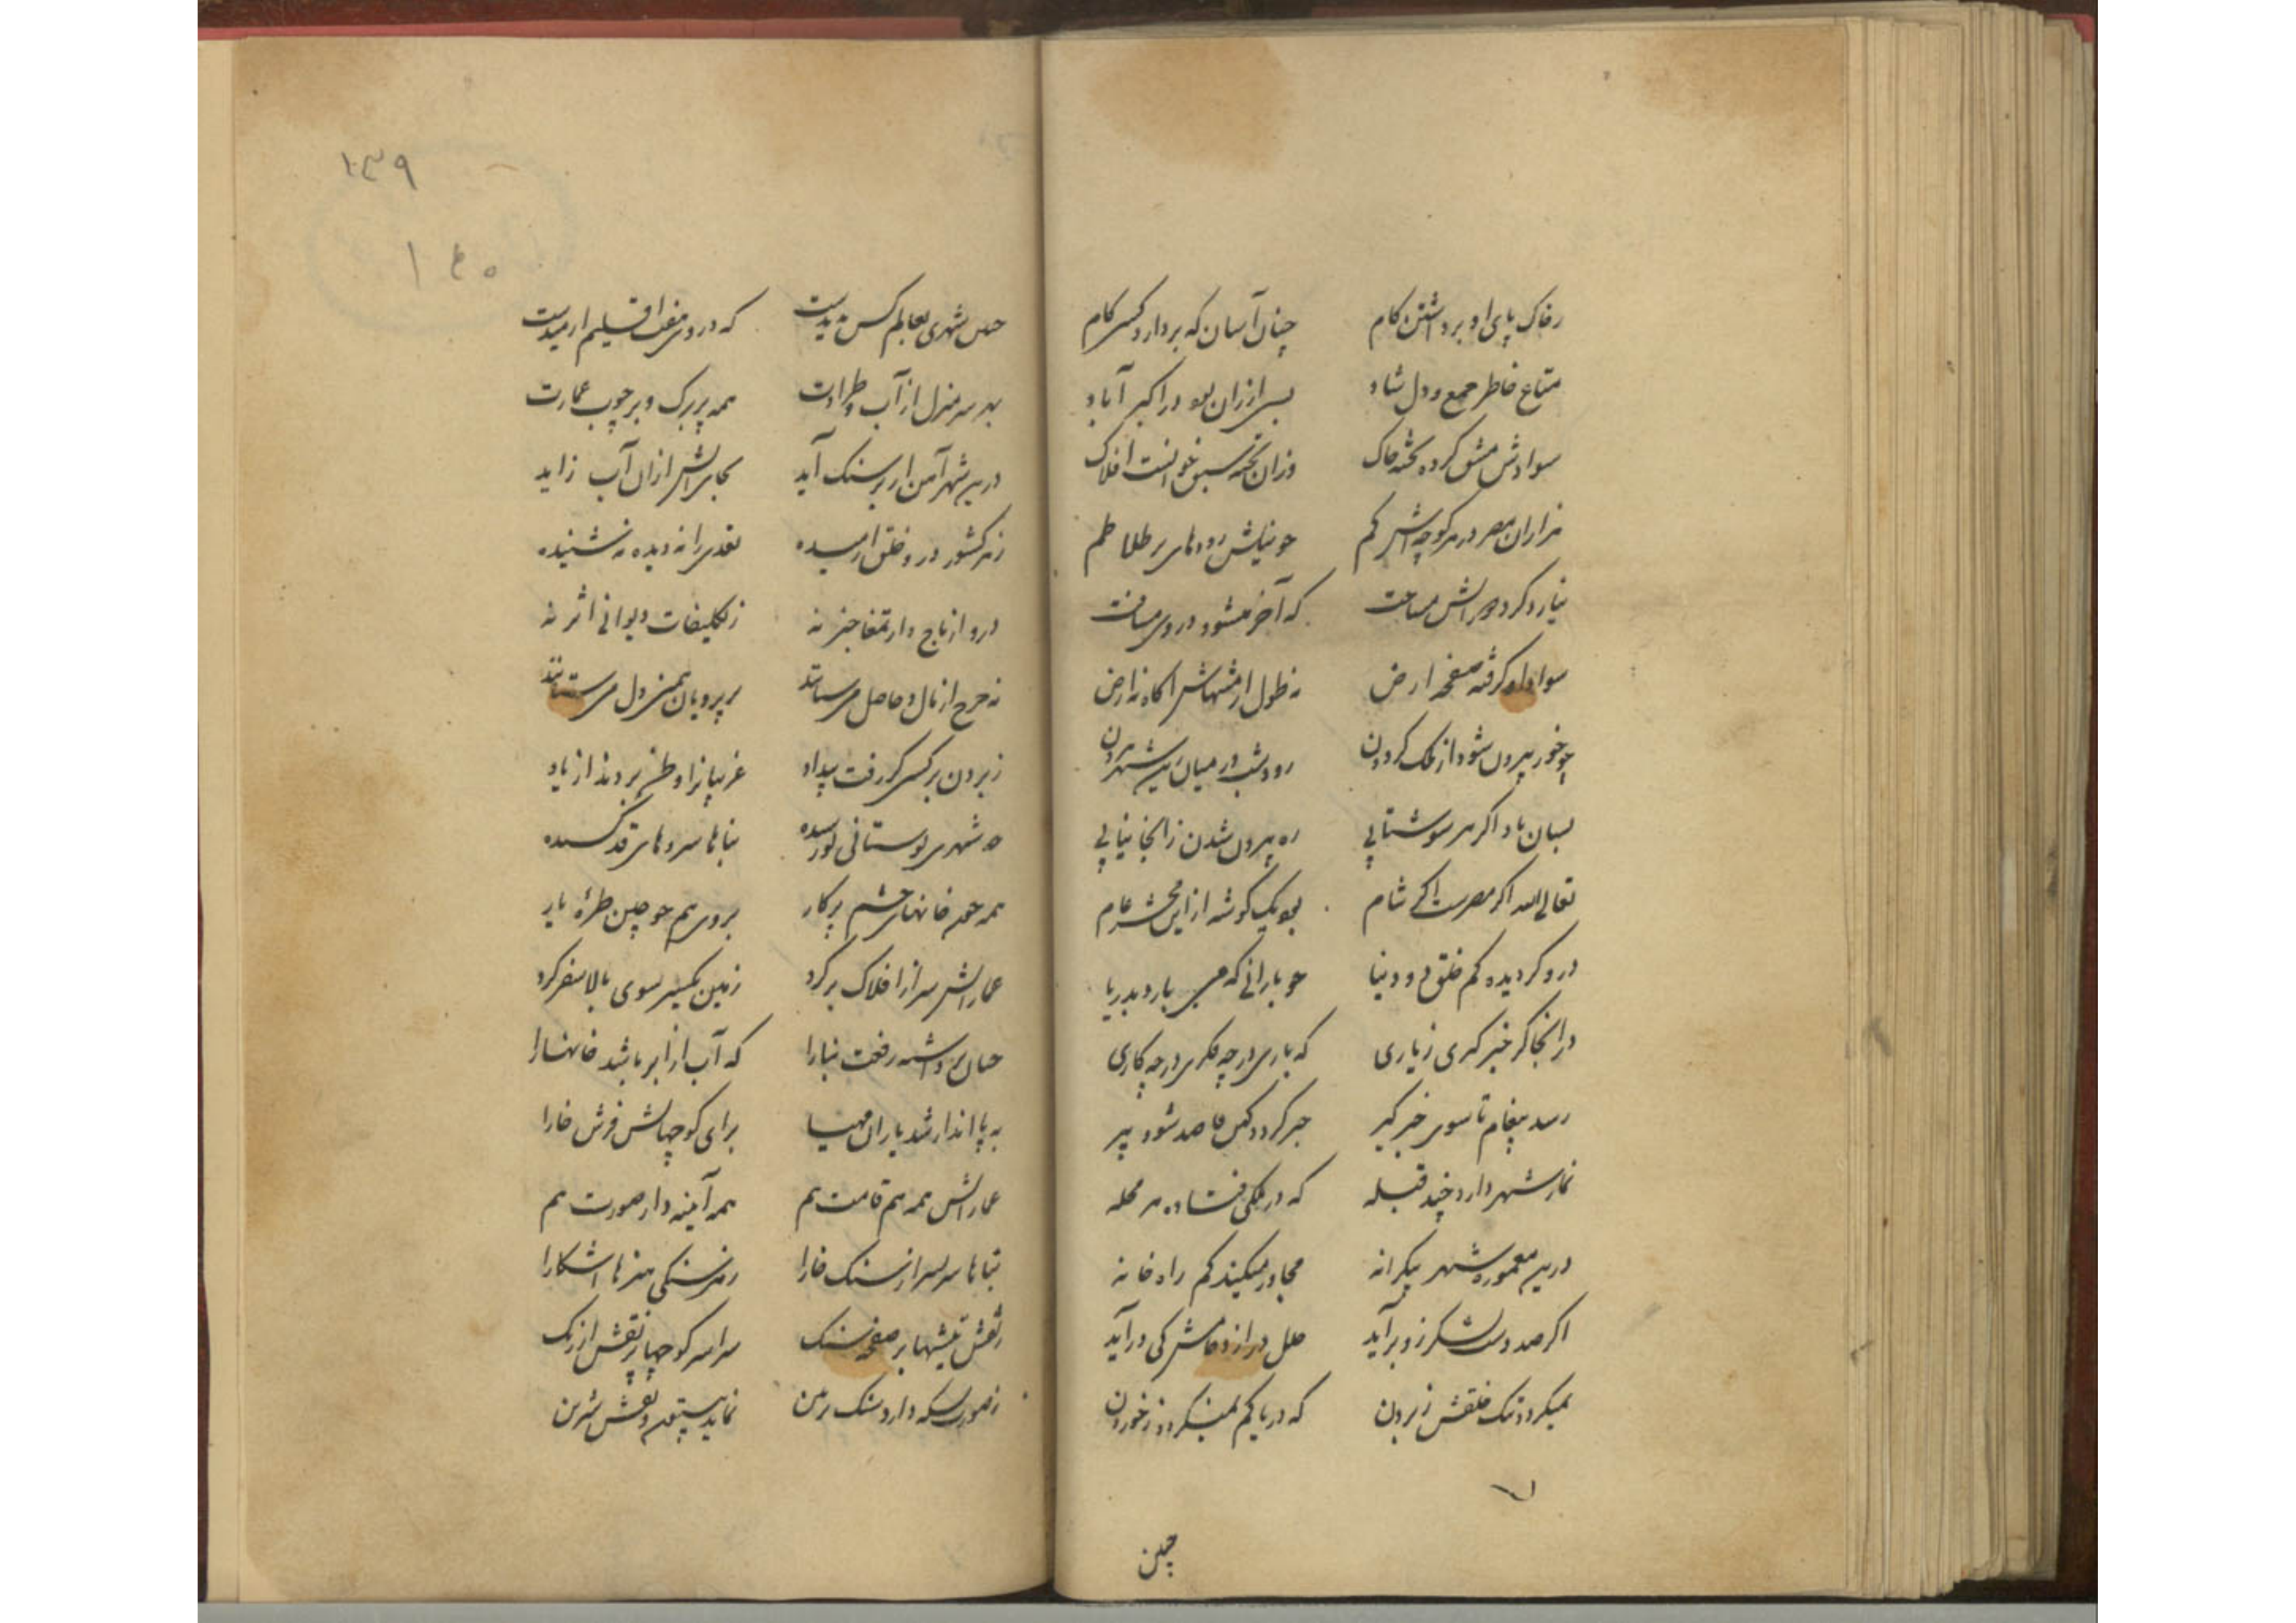 ز خاک پای او برداشتن کام چنان آسان که بردارد کسی کام
متاع خاطر جمع و دل شاد بسی ارزان بود در اکبر آباد
سوادش مشق کرده تخته خاک وزان تخته سبق خوانست افلاک
هزاران مصر در هر کوچه‌اش گم چو نیلش رودهای پر طلاطم
نیارد کرد مهرانش مساحت که آخر میشود در وی مسافت
سواد او گرفته صفحه ارض نه طول از منتهایش آگاه نه ارض
چو خور بیرون شود از ملک گردون رود شب در میان زین شهر بیرون
بسان باد اگر هر سو شتابی ره بیرون شدن زانجا نیابی
تعالی الله اگر مصرست اگر شام بود یک گوشه از این محشر عام
درو گردیده گم خلق دو دنیا چو بارانی که می بارد بدریا
در انجا گر خبر گیری ز یاری که باری در چه فکری در چه کاری
رسد پیغام تا سوی خبر گیر خبر گردد کهن قاصد شود پیر
نماز شهر دارد چند قبله که در ملکی فتاده هر محله
درین معموره شهر بیکرانه مجاور میکند گم راه خانه
اگر صد دست لشکر زو برآید خلل در ازدحامش کی درآید
نمیگردد تنک خلقش ز بردن که دریا کم نمیگردد ز خوردن
چنین
۱۳۹
۱۴۰
چنین شهری بعالم کس ندیدست که در وی هفت اقلیم آرمیدست
بهر سر منزل از آب و طراوت همه پر برگ و بر چوب عمارت
درین شهر آهن ار بر سنک آید بجای آتش ازان آب زاید
ز هر کشور درو خلق آرمیده تعدی را نه دیده نه شنیده
درو از باج و از تمغا خبر نه ز تکلیفات دیوانی اثر نه
نه خرج از مال و حاصل می ستانند پریرویان همین دل می ستانند
ز بردن بر کسی گر رفت بیداد غریبانرا وطن بردند از یاد
نه شهری بوستانی نورسیده بناها سروهای قد کشیده
همه خوش خانهای چشم پرکار بروی هم چو چین طره یار
عماراتش سر از افلاک بر کرد زمین یکسر سوی بالا سفر کرد
چنان داشته رفعت بنا را که آب از ابر باشد خانها را
به پا انداز شد یاران مهیا برای کوچهایش فرش خارا
عماراتش همه هم قامت هم همه آیینه دار صورت هم
بناها سربسر از سنک خارا ز هر سنگی هنرها آشکارا
ز نقش تیشها بر صفحه سنک سراسر کوچها پر نقش ارژنک
ز صورت بسکه دارد سنک رنگین نماید بیستون و نقش شیرین